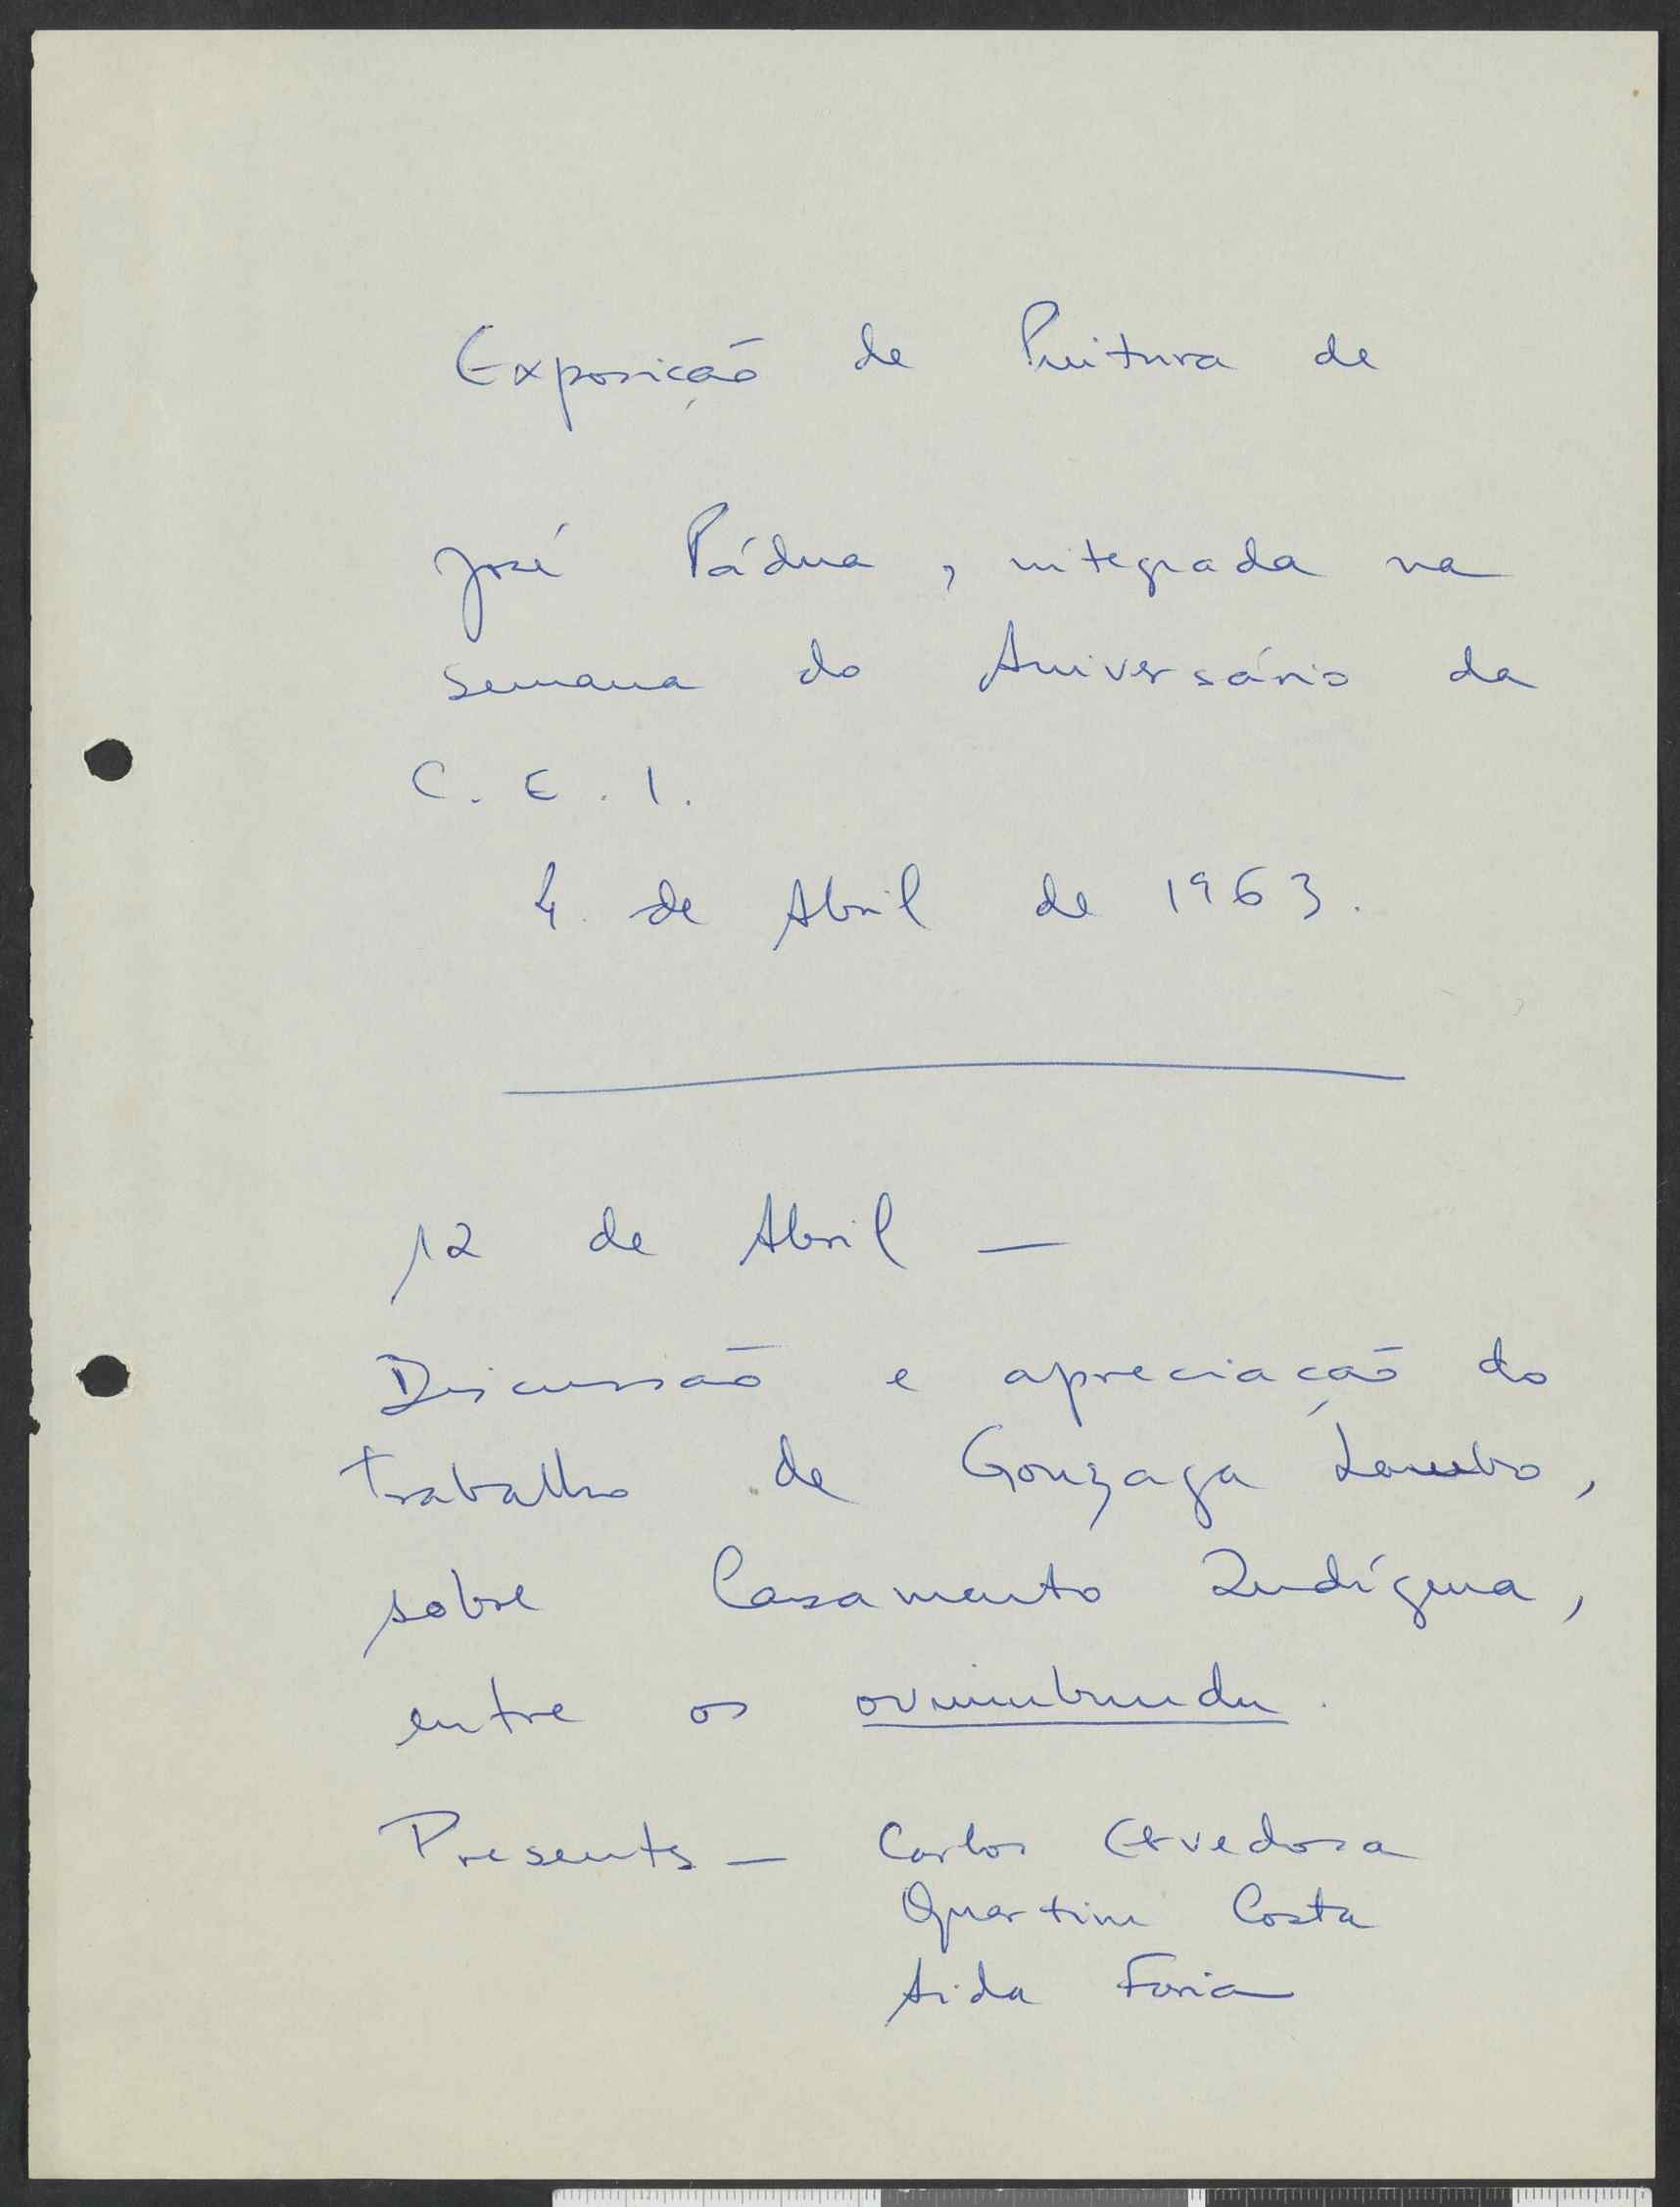 Exposição de Pintura de
José Pádua, integrada na
semana do Aniversário da
C. E. I.
4 de Abril de 1963.
12 de Abril —
Discussão e apreciação do
trabalho de Gonzaga Lambo,
sobre Casamento Indígena,
entre os ovimbundu.
Presents — Carlos Ervedosa
Quartim Costa
Aida Faria